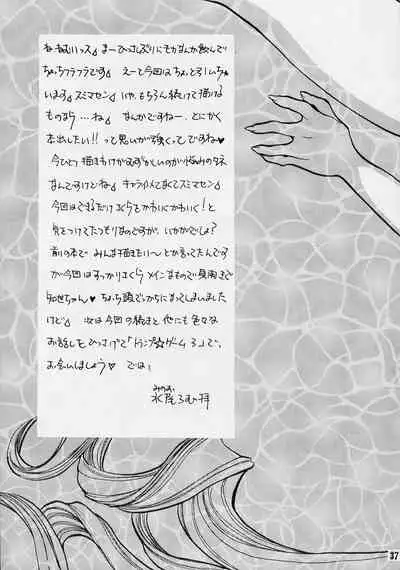 ねねむいっス♪ まーひさしぶりにモカなんか飲んで
ちょっちフラフラです♪ えーて今回はちょとろいちゃ
います♪ スミマセン♪ いゃ、もちろん続けて描ける
ものなら…ね♪ なんかですねー、とにかく
本出したい!!って思いが強くってですね♥
今ひとつ描きわけがむずかしいのが悩みのタネ
なんですけどね♪ キャライメてなくてスミマセン
今回はできるだけさくらをかわいくかわいく!と
気をつけてたつもりなのですが、いかがでしょ?
前の本で みんな描きたい～とか言ってたんです
が今回はすっかりさくらメインなもので見開きで
知世ちゃん♥ ちょっち頭でっかちになってしまいました
けど♪ 次は今回の続きと他にも色々な
お話しをひっさげて「トランプ☆ゲーム3」で、
お会いしましょう♡ では!
みのお
水尾ろむ拝
37